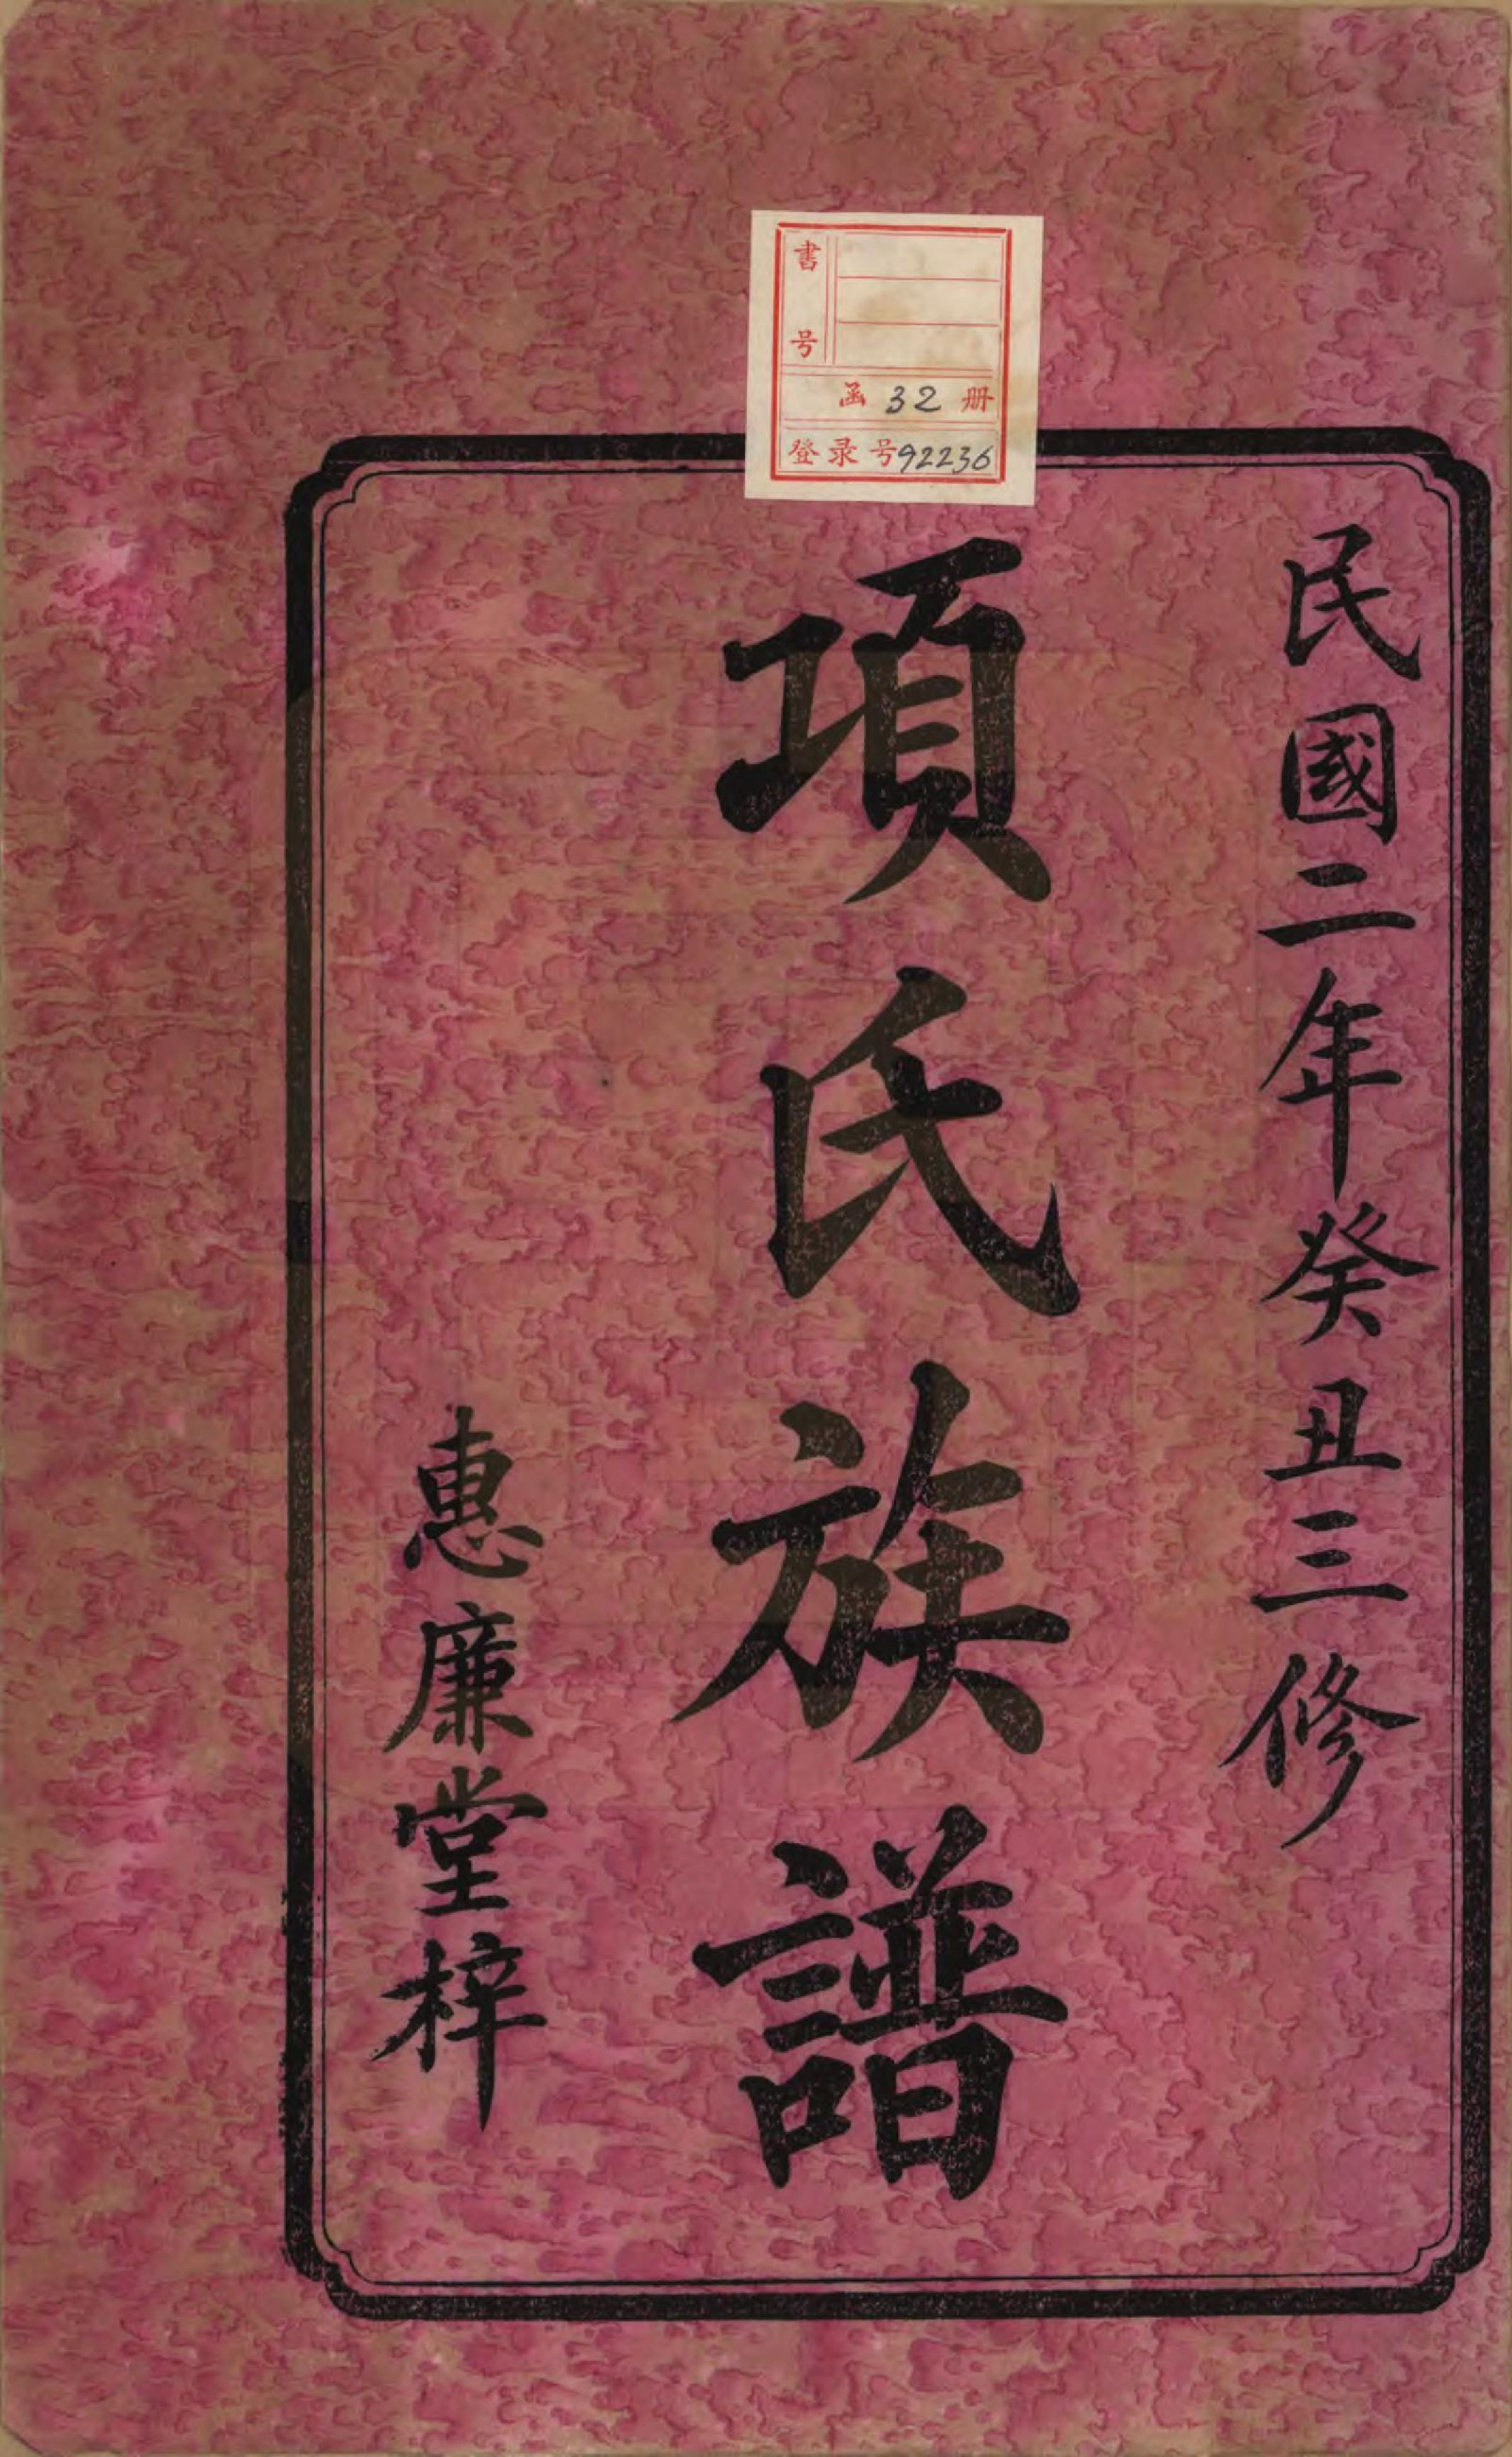 書号
函 32 册
登录号92236
民國二年癸丑三修
項氏族譜
惠廉堂梓